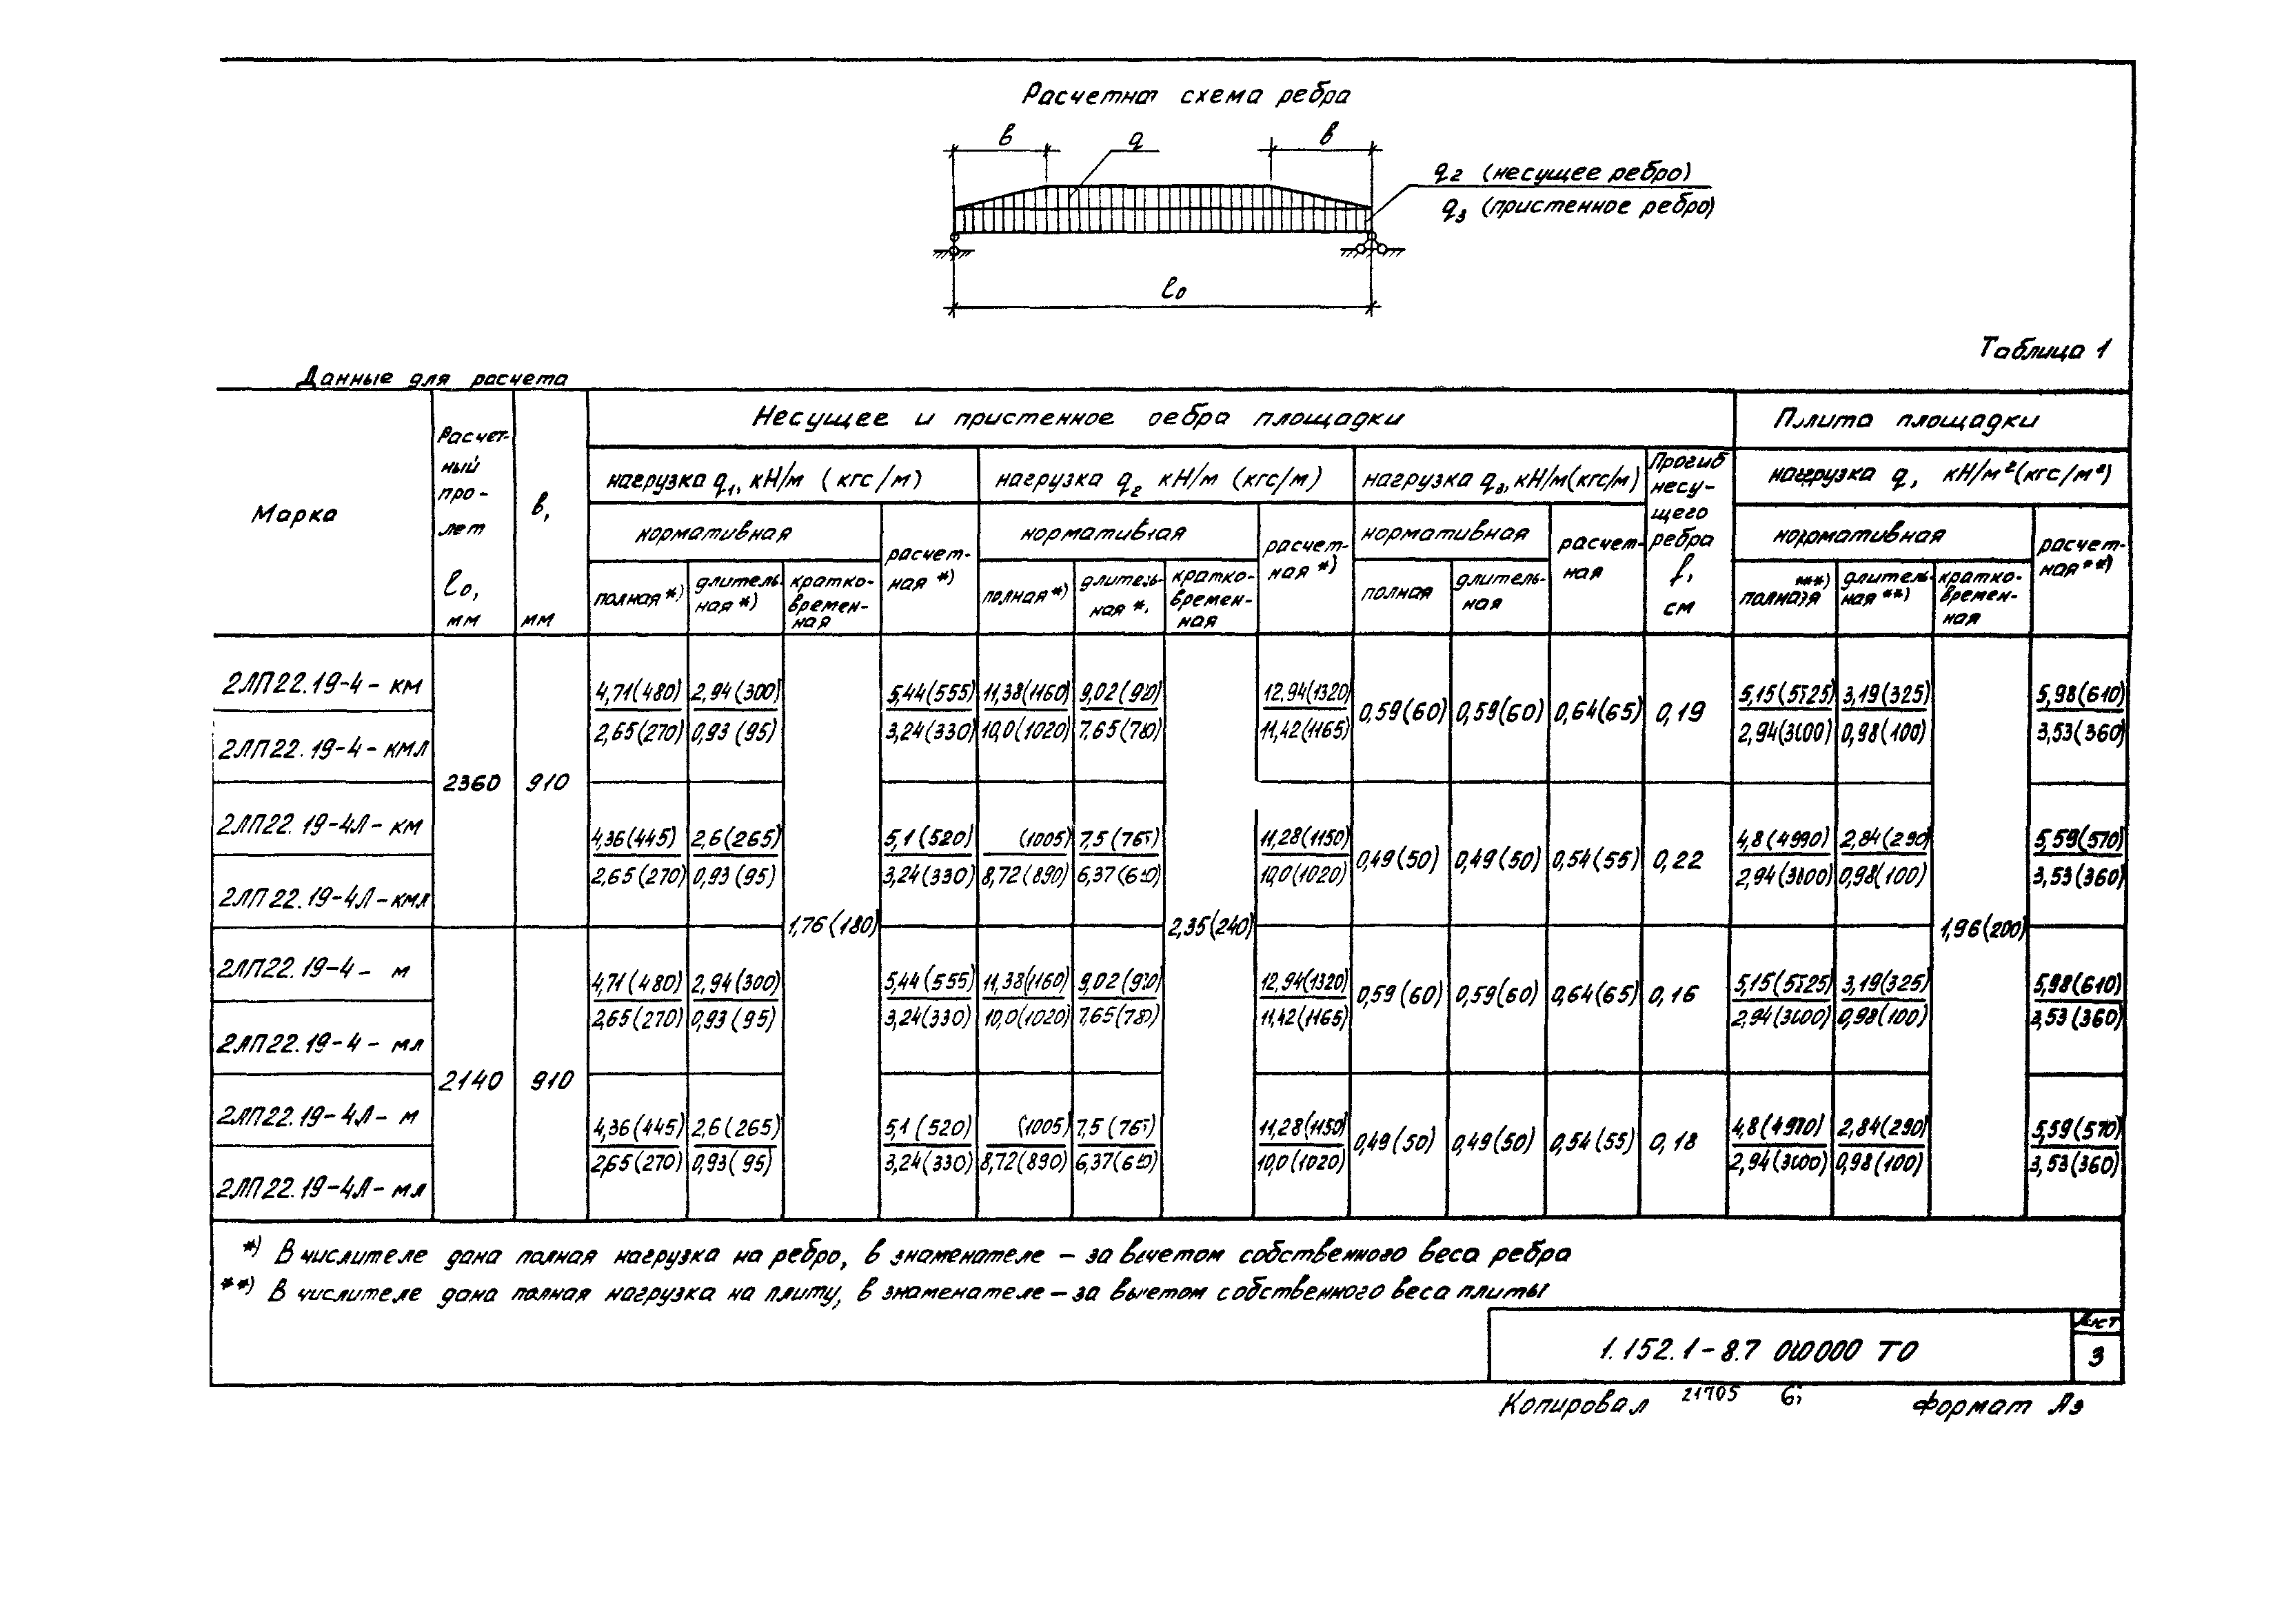 Расчетная схема ребра
в q в
q2 (несущее ребро)
q3 (пристенное ребро)
l0
Таблица 1
Данные для расчета
Марка
Расчет-
ный
про-
лет
l0,
мм
в,
мм
Несущее и пристенное ребра площадки
нагрузка q1, кН/м (кгс/м)
нормативная
полная*)
длитель-
ная*)
кратко-
времен-
ная
расчет-
ная*)
нагрузка q2 кН/м (кгс/м)
нормативная
полная*)
длитель-
ная*)
кратко-
времен-
ная
расчет-
ная*)
нагрузка q3, кН/м(кгс/м)
нормативная
полная
длитель-
ная
расчет-
ная
Прогиб
несу-
щего
ребра
f,
см
Плита площадки
нагрузка q, кН/м²(кгс/м²)
нормативная
полная**)
длитель-
ная**)
кратко-
времен-
ная
расчет-
ная**)
2ЛП22.19-4-км
2ЛП22.19-4-кмл
2360 910
4,71(480) 2,94(300) 5,44(555) 11,38(1160) 9,02(920) 12,94(1320)
2,65(270) 0,93(95) 3,24(330) 10,0(1020) 7,65(780) 11,42(1165)
0,59(60) 0,59(60) 0,64(65) 0,19
5,15(525) 3,19(325) 5,98(610)
2,94(300) 0,98(100) 3,53(360)
2ЛП22.19-4Л-км
2ЛП22.19-4Л-кмл
4,36(445) 2,6(265) 5,1(520) (1005) 7,5(765) 11,28(1150)
2,65(270) 0,93(95) 3,24(330) 8,72(890) 6,37(650) 10,0(1020)
0,49(50) 0,49(50) 0,54(55) 0,22
4,8(490) 2,84(290) 5,59(570)
2,94(300) 0,98(100) 3,53(360)
1,76(180) 2,35(240) 1,96(200)
2ЛП22.19-4- м
2ЛП22.19-4-мл
2140 910
4,71(480) 2,94(300) 5,44(555) 11,38(1160) 9,02(920) 12,94(1320)
2,65(270) 0,93(95) 3,24(330) 10,0(1020) 7,65(780) 11,42(1165)
0,59(60) 0,59(60) 0,64(65) 0,16
5,15(525) 3,19(325) 5,98(610)
2,94(300) 0,98(100) 3,53(360)
2ЛП22.19-4Л- м
2ЛП22.19-4Л-мл
4,36(445) 2,6(265) 5,1(520) (1005) 7,5(765) 11,28(1150)
2,65(270) 0,93(95) 3,24(330) 8,72(890) 6,37(650) 10,0(1020)
0,49(50) 0,49(50) 0,54(55) 0,18
4,8(490) 2,84(290) 5,59(570)
2,94(300) 0,98(100) 3,53(360)
*) В числителе дана полная нагрузка на ребро, в знаменателе – за вычетом собственного веса ребра
**) В числителе дана полная нагрузка на плиту, в знаменателе – за вычетом собственного веса плиты
1.152.1-8.7 000000 ТО
Лист
3
Копировал 21705 Формат А3